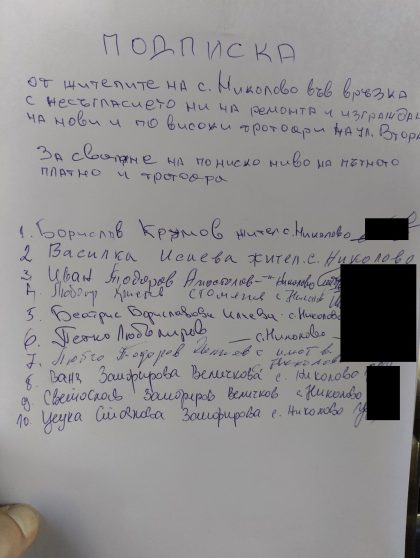 ПОДПИСКА
от жителите на с. Николово във връзка
с несъгласието ни на ремонта и изграждан
на нови и по високи тротоари на ул. Втора
За сваляне на по ниско ниво на пътното
платно и тротоара
1. Борислав Крумов жител с. Николово
2 Василка Исаева жител. с. Николово
3. Иван Тодоров Апостолов - Николово
4. Любомир с
5. Беатрис Бориславова Илиева - с. Николово
6. Петко Любомиров - с. Николово
7. Тодоров
8. Ваня Замфирова Величкова с. Николово
9. Светослав Замфиров Величков с. Николово
10. Цецка Стоянова Замфирова с. Николово